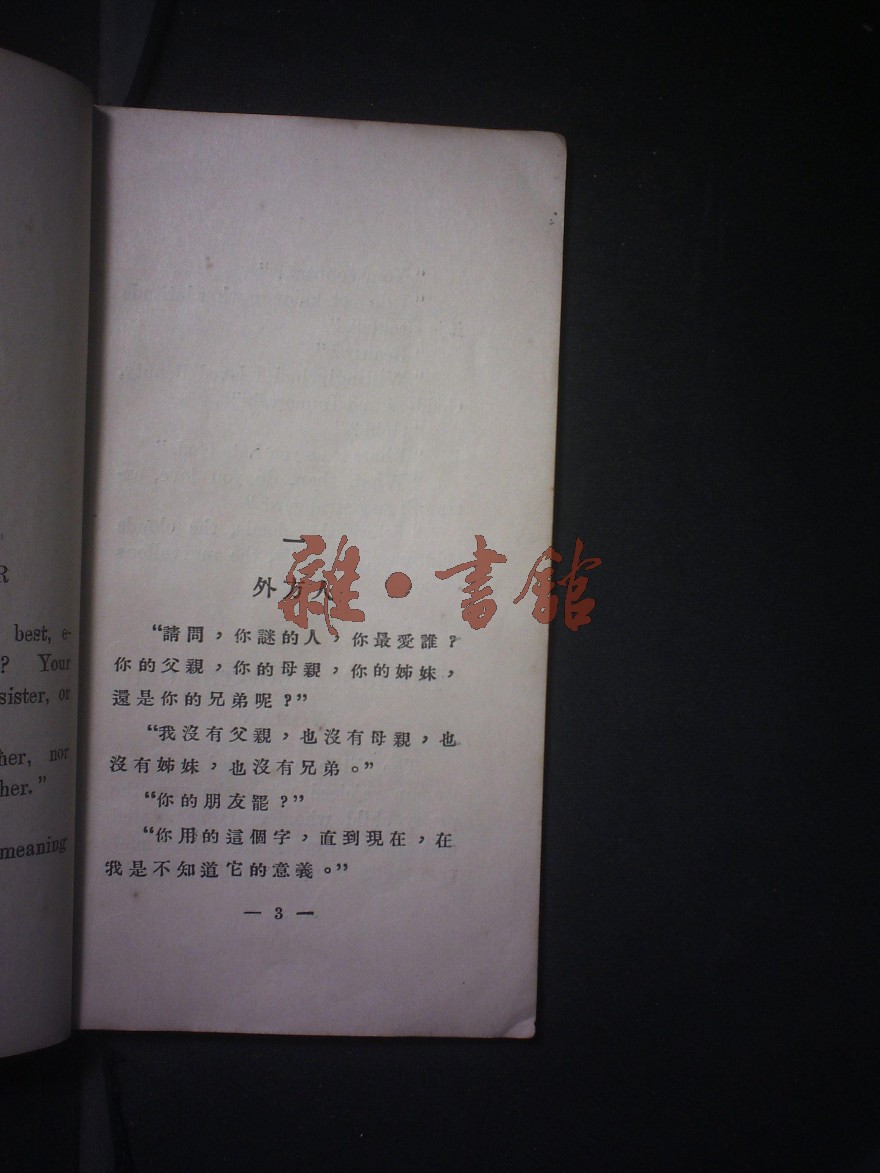 R
best, e-
? Your
sister, or
her, nor
her."
meaning
一
外方人
“請問，你謎的人，你最愛誰？
你的父親，你的母親，你的姊妹，
還是你的兄弟呢？”
“我沒有父親，也沒有母親，也
沒有姊妹，也沒有兄弟。”
“你的朋友罷？”
“你用的這個字，直到現在，在
我是不知道它的意義。”
— 3 —
雜·書館